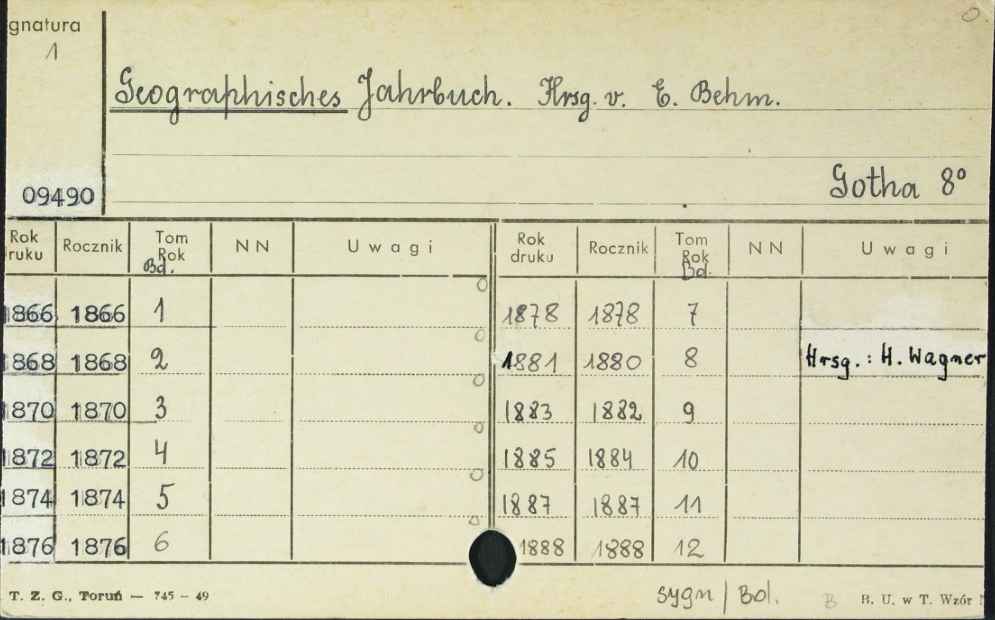 gnatura
1
Geographisches Jahrbuch. Hrsg. v. E. Behm.
09490
Gotha 8°
Rok druku Rocznik Tom Rok Bd. NN Uwagi Rok druku Rocznik Tom Rok Bd. NN Uwagi
1866 1866 1 1878 1878 7
1868 1868 2 1881 1880 8 Hrsg.: H. Wagner
1870 1870 3 1883 1882 9
1872 1872 4 1885 1884 10
1874 1874 5 1887 1887 11
1876 1876 6 1888 1888 12
T. Z. G., Toruń — 745 – 49 sygn / Bol. B B. U. w T. Wzór